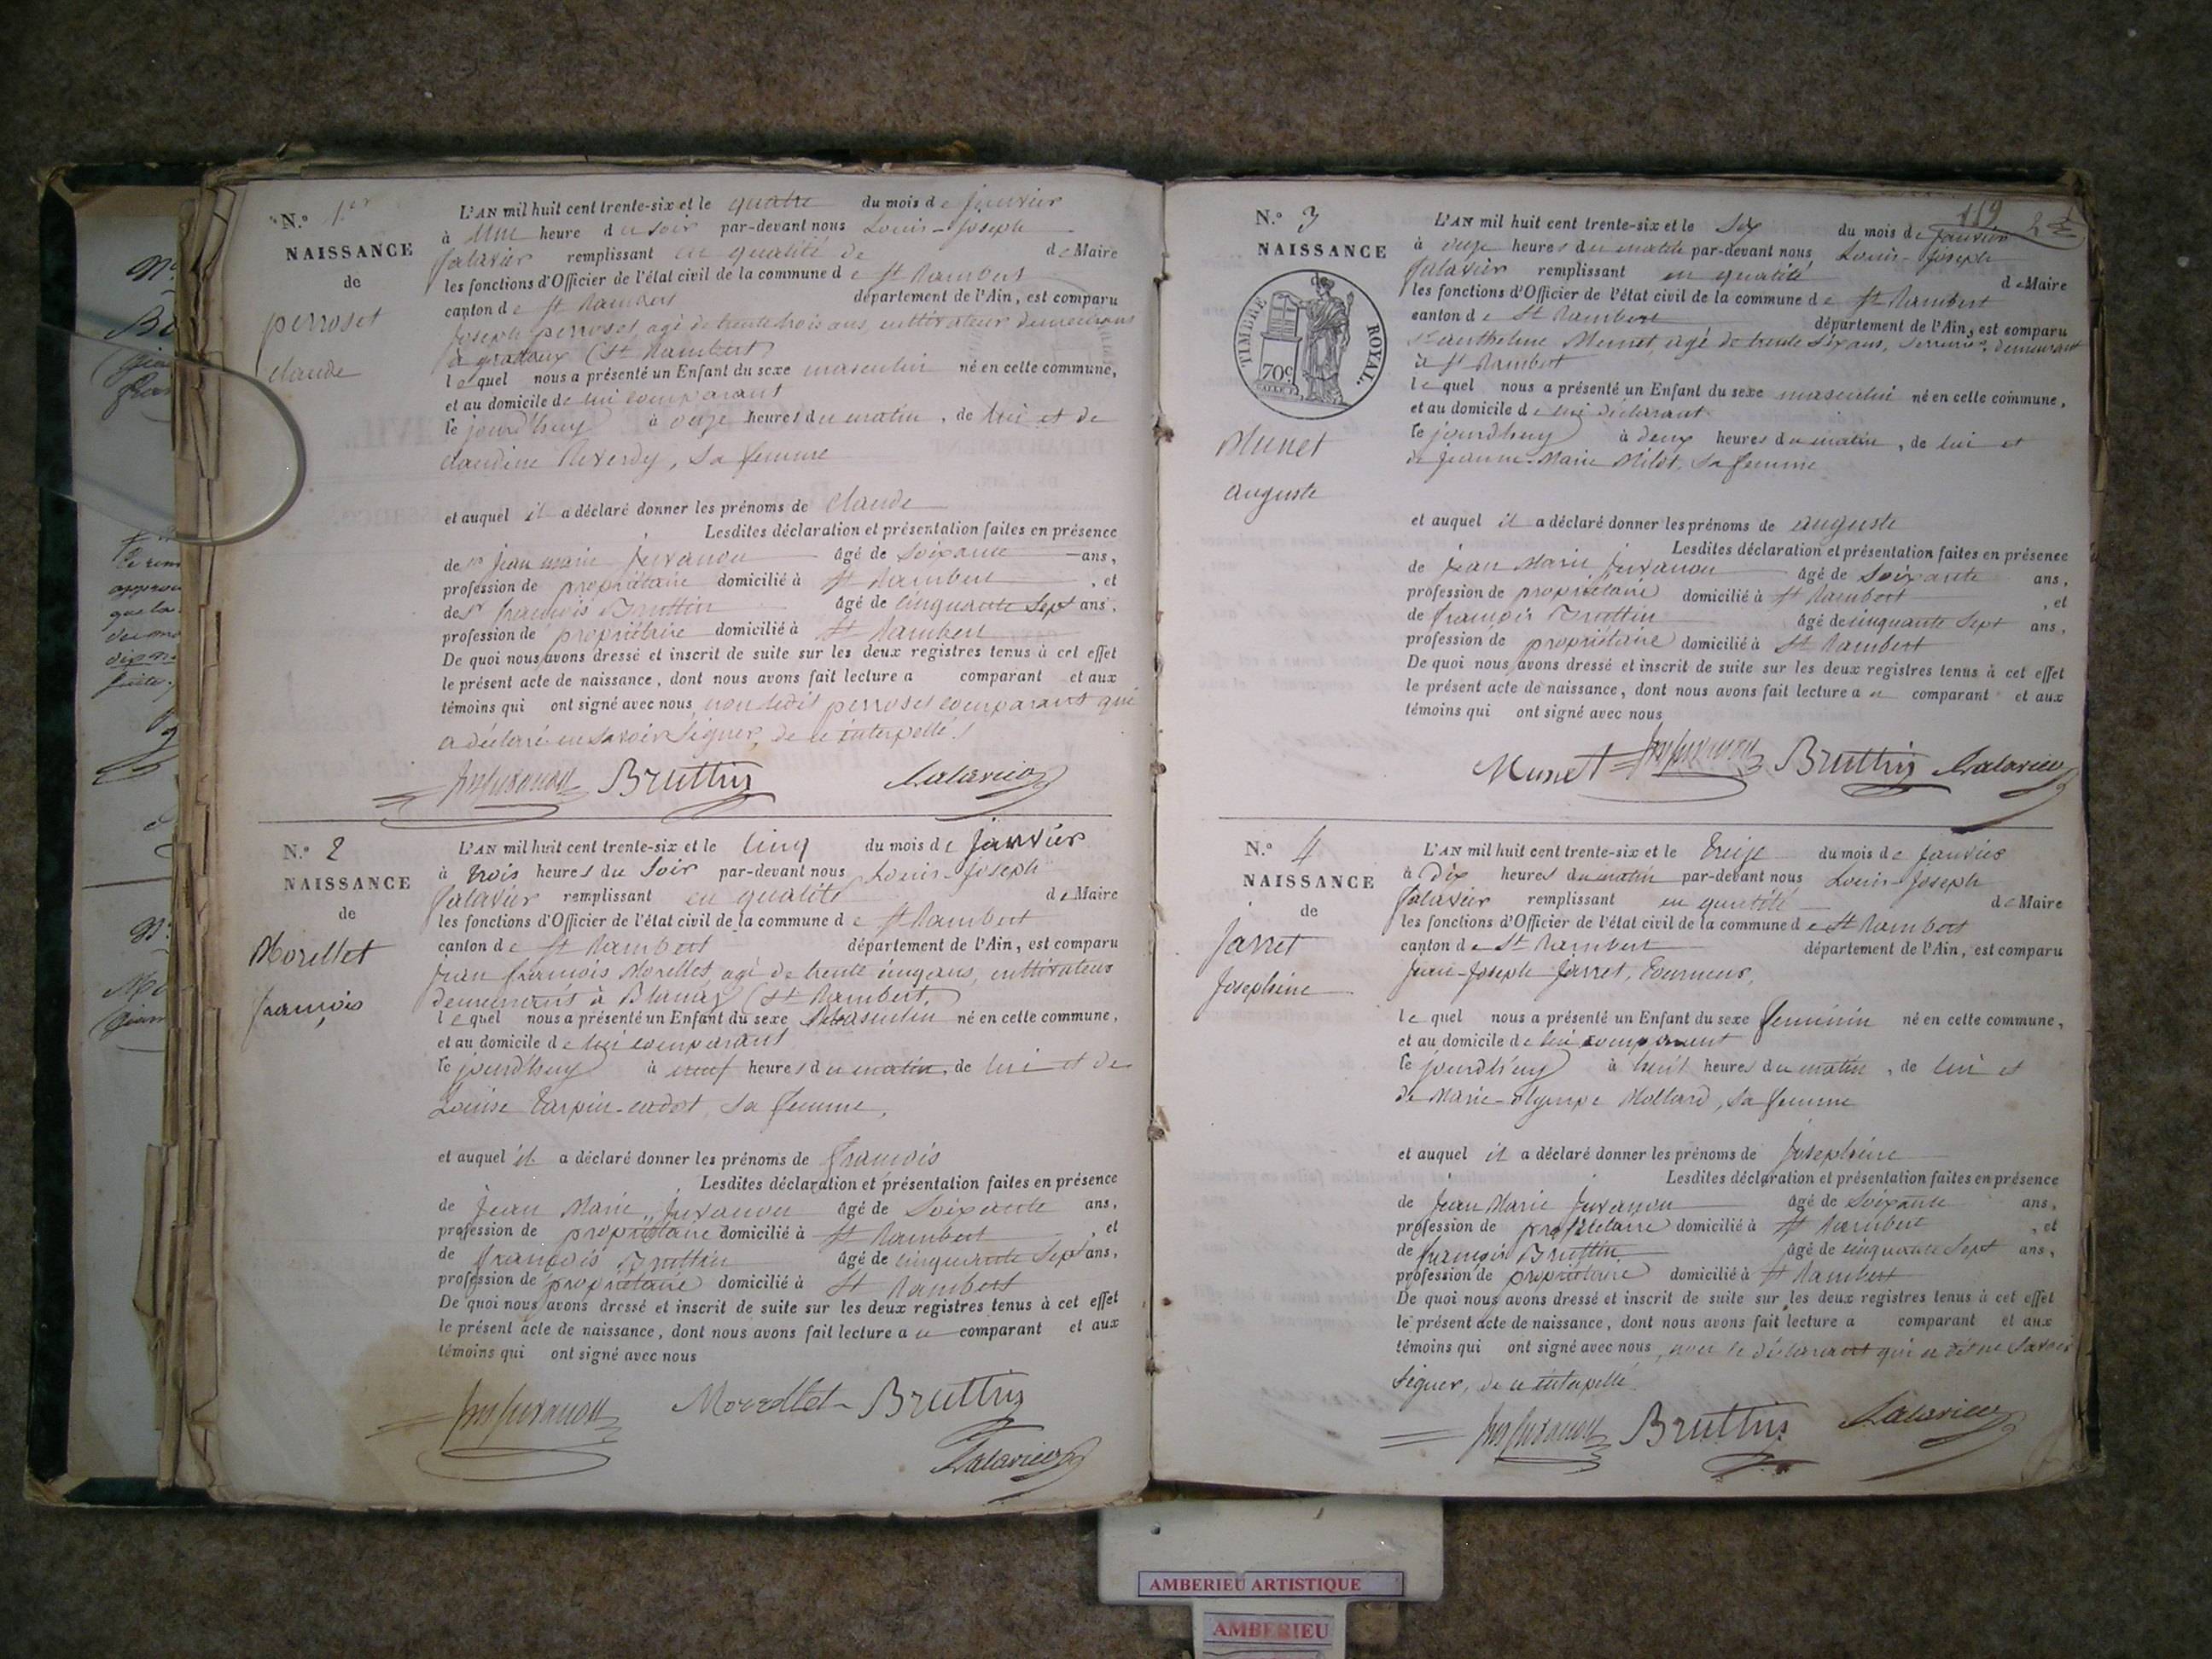 N.° 1er
NAISSANCE
de
perroset
claude
L'AN mil huit cent trente-six et le quatre du mois de janvier
à une heure du soir par-devant nous Louis-Joseph
remplissant en qualité de de Maire
les fonctions d'Officier de l'état civil de la commune de St Rambert
canton de St Rambert département de l'Ain, est comparu
Joseph perroset, agé de trente trois ans, cultivateur demeurant
à (St Rambert)
lequel nous a présenté un Enfant du sexe masculin né en cette commune,
et au domicile de lui comparant
le jourd'huy à onze heures du matin, de lui et de
claudine Reverdy, sa femme
et auquel il a déclaré donner les prénoms de claude
Lesdites déclaration et présentation faites en présence
de sr jean marie Juvanon âgé de soixante ans,
profession de propriétaire domicilié à St Rambert, et
de sr françois Bruttin âgé de cinquante sept ans,
profession de propriétaire domicilié à St Rambert
De quoi nous avons dressé et inscrit de suite sur les deux registres tenus à cet effet
le présent acte de naissance, dont nous avons fait lecture a comparant et aux
témoins qui ont signé avec nous non ledit perroset comparant qui
a déclaré ne savoir signer, de ce interpellé.
Juvanon Bruttin
N.° 2
NAISSANCE
de
Morellet
françois
L'AN mil huit cent trente-six et le cinq du mois de janvier
à trois heures du soir par-devant nous Louis-Joseph
remplissant en qualité de Maire
les fonctions d'Officier de l'état civil de la commune de St Rambert
canton de St Rambert département de l'Ain, est comparu
jean françois Morellet, agé de trente cinq ans, cultivateur
demeurant à Blanaz (St Rambert)
lequel nous a présenté un Enfant du sexe masculin né en cette commune,
et au domicile de lui comparant
le jourd'huy à neuf heures du matin, de lui et de
Louise sa femme,
et auquel il a déclaré donner les prénoms de françois
Lesdites déclaration et présentation faites en présence
de Jean Marie Juvanon âgé de soixante ans,
profession de propriétaire domicilié à St Rambert, et
de françois Bruttin âgé de cinquante sept ans,
profession de propriétaire domicilié à St Rambert
De quoi nous avons dressé et inscrit de suite sur les deux registres tenus à cet effet
le présent acte de naissance, dont nous avons fait lecture a u comparant et aux
témoins qui ont signé avec nous
Juvanon Morellet Bruttin
119
2
N.° 3
NAISSANCE
TIMBRE ROYAL.
70c
Munet
auguste
L'AN mil huit cent trente-six et le six du mois de janvier
à onze heures du matin par-devant nous Louis-Joseph
remplissant en qualité de Maire
les fonctions d'Officier de l'état civil de la commune de St Rambert
canton de St Rambert département de l'Ain, est comparu
sr anthelme Munet, agé de trente six ans, serrurier, demeurant
à St Rambert
lequel nous a présenté un Enfant du sexe masculin né en cette commune,
et au domicile de lui déclarant
le jourd'huy à deux heures du matin, de lui et
de jeanne-Marie Milot, sa femme
et auquel il a déclaré donner les prénoms de auguste
Lesdites déclaration et présentation faites en présence
de Jean Marie Juvanon âgé de soixante ans,
profession de propriétaire domicilié à St Rambert, et
de françois Bruttin âgé de cinquante sept ans,
profession de propriétaire domicilié à St Rambert
De quoi nous avons dressé et inscrit de suite sur les deux registres tenus à cet effet
le présent acte de naissance, dont nous avons fait lecture a u comparant et aux
témoins qui ont signé avec nous
Munet Juvanon Bruttin
N.° 4
NAISSANCE
de
Jarret
Josephine
L'AN mil huit cent trente-six et le treize du mois de janvier
à dix heures du matin par-devant nous Louis-Joseph
remplissant en qualité de Maire
les fonctions d'Officier de l'état civil de la commune de St Rambert
canton de St Rambert département de l'Ain, est comparu
Jean-Joseph Jarret, tourneur,
lequel nous a présenté un Enfant du sexe feminin né en cette commune,
et au domicile de lui comparant
le jourd'huy à huit heures du matin, de lui et
de Marie-olympe Mollard, sa femme
et auquel il a déclaré donner les prénoms de Josephine
Lesdites déclaration et présentation faites en présence
de Jean Marie Juvanon âgé de soixante ans,
profession de propriétaire domicilié à St Rambert, et
de françois Bruttin âgé de cinquante sept ans,
profession de propriétaire domicilié à St Rambert
De quoi nous avons dressé et inscrit de suite sur les deux registres tenus à cet effet
le présent acte de naissance, dont nous avons fait lecture a comparant et aux
témoins qui ont signé avec nous, non le déclarant qui a dit ne savoir
signer, de ce interpellé.
Juvanon Bruttin
AMBERIEU ARTISTIQUE
AMBERIEU